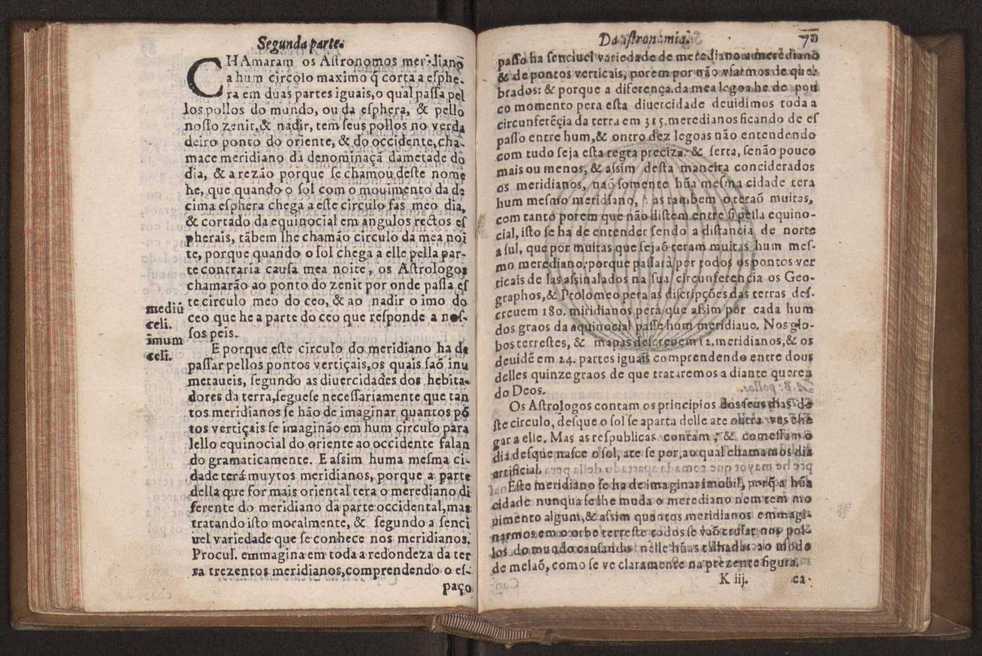 Segunda parte.
CHAmaram os Astronomos meridiano
a hum circolo maximo q̃ corta a esphe-
ra em duas partes iguais, o qual passa pel
los pollos do mundo, ou da esphera, & pello
nosso zenit, & nadir, tem seus pollos no verda
deiro ponto do oriente, & do occidente, cha-
mace meridiano da denominaçã dametade do
dia, & a rezão porque se chamou deste nome
he, que quando o sol com o movimento da de
cima esphera chega a este circulo fas meo dia,
& cortado da equinocial em angulos rectos es
pherais, tãbem lhe chamão circulo da mea noi
te, porque quando o sol chega a elle pella par-
te contraria causa mea noite, os Astrologos
chamarão ao ponto do zenit por onde passa es
te circulo meo do ceo, & ao nadir o imo do
ceo que he a parte do ceo que responde a nos-
sos peis.
mediũ
celi.
imum
celi.
E porque este circulo do meridiano ha de
passar pellos pontos vertiçais, os quais saõ inu
metaueis, segundo as diuercidades dos hebita-
dores da terra, seguese necessariamente que tan
tos meridianos se hão de imaginar quantos põ
tos vertiçais se imaginão em hum circulo para
lello equinocial do oriente ao occidente falan
do gramaticamente. E assim huma mesma ci-
dade terá muytos meridianos, porque a parte
della que for mais oriental tera o merediano di
ferente do meridiano da parte occidental, mas
tratando isto moralmente, & segundo a senci
uel variedade que se conhece nos meridianos.
Procul. emmagina em toda a redondeza da ter
ra trezentos meridianos, comprendendo o es-
paço
Da astronomia. 70
passo ha senciuel variedade de merediano a merediano
& de pontos verticais, porem por não vsarmos de que
brados: & porque a diferença da mea legoa he de pou
co momento pera esta diuercidade deuidimos toda a
circunferẽçia da terra em 315. meredianos ficando de es
passo entre hum, & outro dez legoas não entendendo
com tudo seja esta regra preciza: & serta, senão pouco
mais ou menos, & assim desta maneira conciderados
os meridianos, naõ somente hũa mesma cidade tera
hum mesmo meridiano, mas tambem o teraõ muitas,
com tanto porem que não distem entre si pella equino-
cial, isto se ha de entender sendo a distancia de norte
a sul, que por muitas que sejaõ teram muitas hum mes-
mo merediano, porque passará por todos os pontos ver
ticais de las assinalados na sua circunferencia os Geo-
graphos, & Ptolomeo pera as discripções das terras des-
creuem 180. miridianos pera que assim por cada hum
dos graos da equinocial passe hum meridiano. Nos glo-
bos terrestes, & mapas descreuem 12. meridianos, & os
deuidẽ em 24. partes iguais comprendendo entre dous
delles quinze graos de que trataremos a diante queren
do Deos.
Os Astrologos contam os principios dos seus dias de
ste circulo, desque o sol se aparta delle ate outra ves che
gar a elle. Mas as respublicas contam, & comessam o
dia desque nasce o sol, ate se por, ao qual chamamos dia
artificial.
Este meridiano se ha de imaginar imobil, porq̃ a hũa
cidade nunqua se lhe muda o merediano nem tem mo
uimento algum, & assim quantos meridianos emmagi-
narmos em o orbe terreste todos se vaõ crusar nos pol-
los do mundo causando nelle hũas talhadas ao modo
de melaõ, como se ve claramente na prezente figura.
K iij. ca